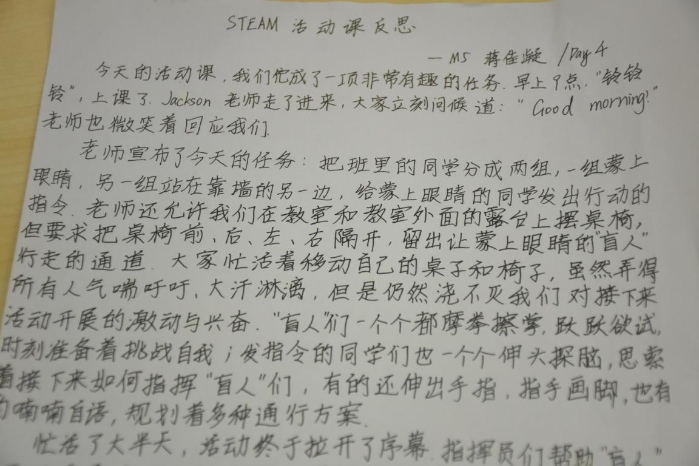 STEAM 活动课反思
—M5 蒋佳凝 /Day 4
今天的活动课,我们完成了一项非常有趣的任务.早上9点,"铃铃
铃",上课了.Jackson 老师走了进来,大家立刻问候道:"Good morning!"
老师也微笑着回应我们.
老师宣布了今天的任务:把班里的同学分成两组,一组蒙上
眼睛,另一组站在靠墙的另一边,给蒙上眼睛的同学发出行动的
指令.老师还允许我们在教室和教室外面的露台上摆桌椅,
但要求把桌椅前、后、左、右隔开,留出让蒙上眼睛的"盲人"
行走的通道.大家忙活着移动自己的桌子和椅子,虽然弄得
所有人气喘吁吁、大汗淋漓,但是仍然浇不灭我们对接下来
活动开展的激动与兴奋."盲人"们一个个都摩拳擦掌,跃跃欲试,
时刻准备着挑战自我;发指令的同学们也一个个伸头探脑,思索
着接下来如何指挥"盲人"们,有的还伸出手指,指手画脚,也有
的喃喃自语,规划着多种通行方案.
忙活了大半天,活动终于拉开了序幕.指挥员们帮助"盲人"